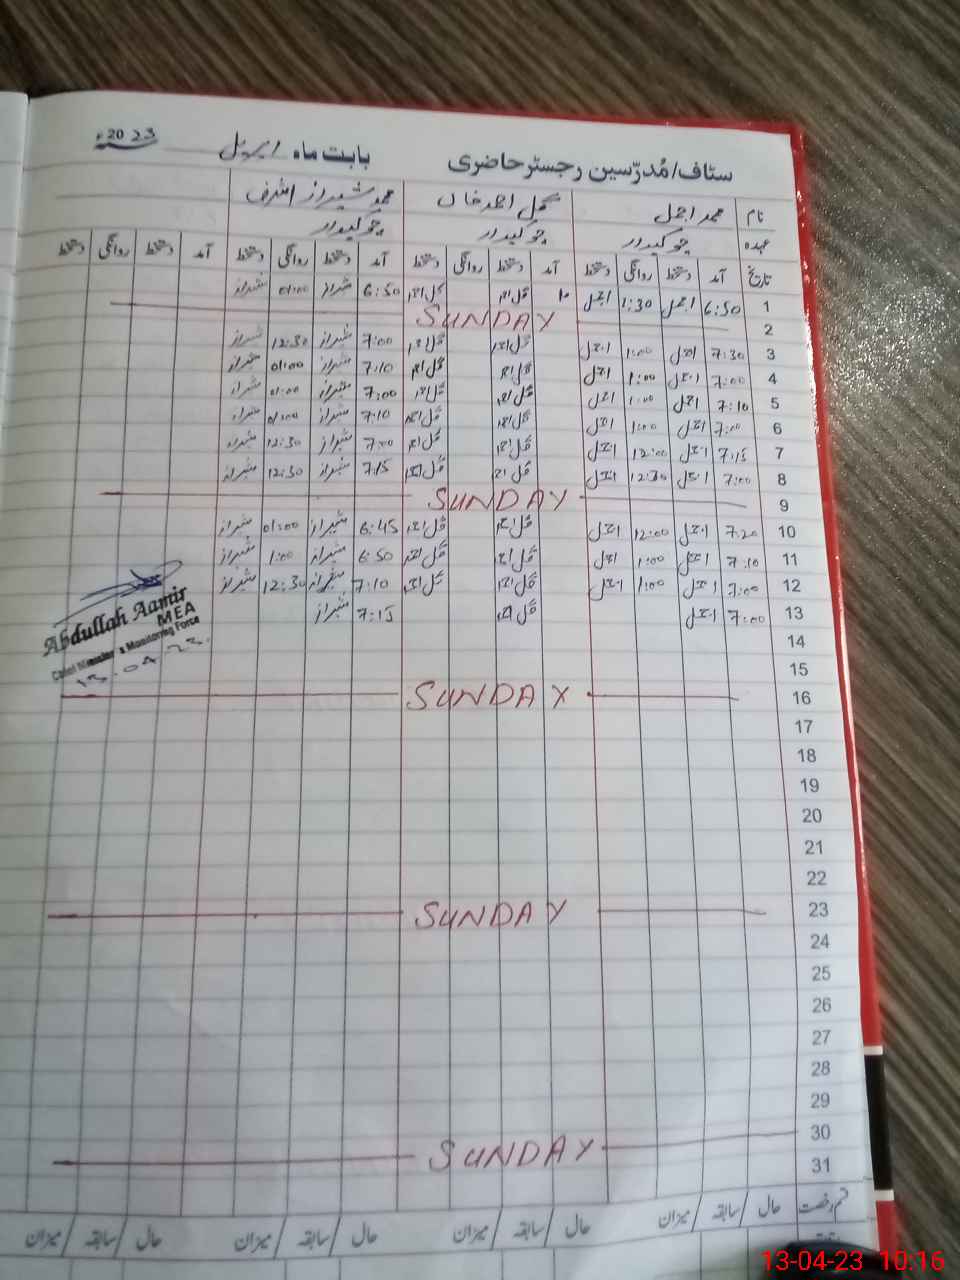 سٹاف/مُدرّسین رجسٹر حاضری بابت ماہ اپریل 2023ء
نام محمد اجمل گل احمد خان محمد شیراز اشرف
عہدہ چوکیدار چوکیدار چوکیدار
تاریخ آمد دستخط روانگی دستخط آمد دستخط روانگی دستخط آمد دستخط روانگی دستخط آمد دستخط روانگی دستخط
1 6:50 اجمل 1:30 اجمل گل احمد گل احمد 6:50 شیراز 01:00 شیراز
2 SUNDAY
3 7:30 اجمل 1:00 اجمل گل احمد گل احمد 7:00 شیراز 12:30 شیراز
4 7:00 اجمل 1:00 اجمل گل احمد گل احمد 7:10 شیراز 01:00 شیراز
5 7:10 اجمل 1:00 اجمل گل احمد گل احمد 7:00 شیراز 01:00 شیراز
6 7:00 اجمل 1:00 اجمل گل احمد گل احمد 7:10 شیراز 01:00 شیراز
7 7:15 اجمل 12:00 اجمل گل احمد گل احمد 7:00 شیراز 12:30 شیراز
8 7:00 اجمل 12:30 اجمل گل احمد گل احمد 7:15 شیراز 12:30 شیراز
9 SUNDAY
10 7:20 اجمل 12:00 اجمل گل احمد گل احمد 6:45 شیراز 01:00 شیراز
11 7:10 اجمل 1:00 اجمل گل احمد گل احمد 6:50 شیراز 1:00 شیراز
12 7:00 اجمل 1:00 اجمل گل احمد گل احمد 7:10 شیراز 12:30 شیراز
13 7:00 اجمل گل احمد 7:15 شیراز
Abdullah Aamir
MEA
Chief Minister's Monitoring Force
13.04.23.
14
15
16 SUNDAY
17
18
19
20
21
22
23 SUNDAY
24
25
26
27
28
29
30 SUNDAY
31
قسم رخصت حال / سابقہ / میزان حال / سابقہ / میزان حال / سابقہ / میزان حال / سابقہ / میزان
13-04-23 10:16